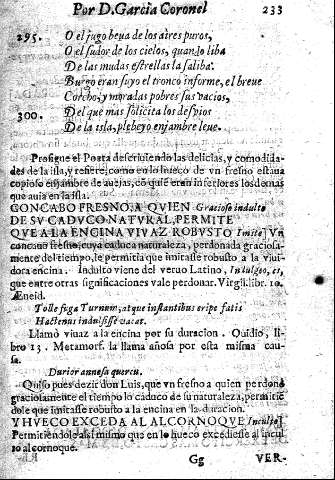 Por D. Garcia Coronel 233
295. O el jugo beua de los aires puros,
O el sudor de los cielos, quando liba
De las mudas estrellas la saliba.
Burgo eran suyo el tronco informe, el breue
Corcho, y moradas pobres sus vacios,
300. Del que mas solicita los desvios
De la isla, plebeyo enjambre leue.
Prosigue el Poeta descriuiendo las delicias, y comodida-
des de la isla, y refiere, como en lo hueco de vn fresno estaua
copioso enjambre de auejas, cō quiē eran inferiores los demas
que auia en la isla.
GONCABO FRESNO, A QVIEN Gracioso indulto
DE SV CADVCO NATVRAL, PERMITE
QVE A LA ENCINA VIVAZ ROBVSTO Imite; Vn
concauo fresno, cuya caduca naturaleza, perdonada graciosa-
mente del tiempo, le permitia que imitasse robusto a la viui-
dora encina. Indulto viene del veruo Latino, Indulgeo, es,
que entre otras significaciones vale perdonar. Virgil. lib. 10.
Æneid.
Tolle fuga Turnum, atque instantibus eripe fatis
Hactenus indulsisse vacat.
Llamò viuaz a la encina por su duracion. Ouidio, li-
bro 13. Metamorf. la llama añosa por esta misma cau-
sa.
Durior annosa quercu.
Quiso pues dezir don Luis, que vn fresno a quien perdonò
graciosamente el tiempo lo caduco de su naturaleza, permitiē
dole que imitasse robusto a la encina en la duracion.
Y HVECO EXCEDA AL ALCORNOQVE Inculto;
Permitiendole assi mismo que en lo hueco excediesse al incul
to alcornoque.
Gg VER-